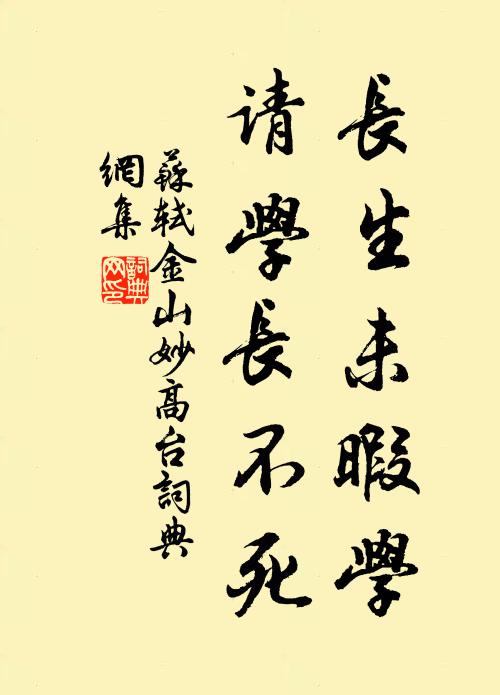 長生未暇學
请學長不死
蘇軾金山妙高台詞典
網集
詞典
网印